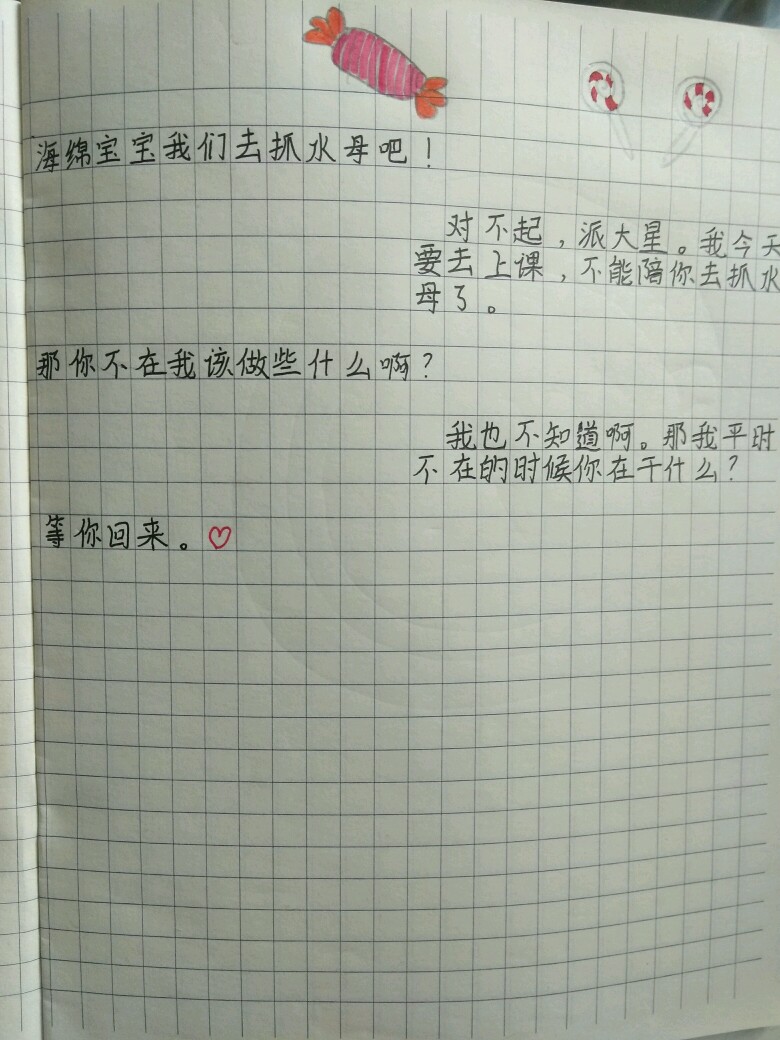 海绵宝宝我们去抓水母吧！
对不起，派大星。我今天
要去上课，不能陪你去抓水
母了。
那你不在我该做些什么啊？
我也不知道啊。那我平时
不在的时候你在干什么？
等你回来。